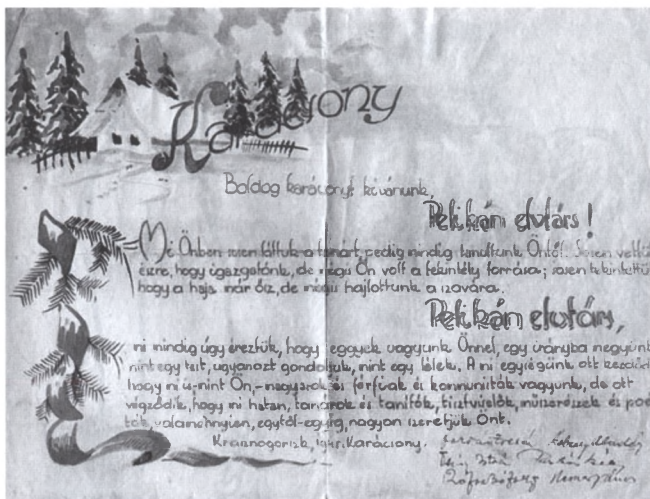 Karácsony
Boldog karácsonyt kívánunk,
Pelikán elvtárs!
Mi Önben sosem láttuk a tanárt, pedig mindig tanultunk Öntől. Sosem vettük
észre, hogy igazgatónk, de mégis Ön volt a tekintély forrása; sosem tekintettük
hogy a haja már ősz, de mégis hajlottunk a szavára.
Pelikán elvtárs,
mi mindig úgy éreztük, hogy eggyek vagyunk Önnel, egy irányba megyünk
mint egy test, ugyanazt gondoljuk, mint egy lélek. A mi egységünk ott kezdődik
hogy mi is-mint Ön,-magyarok és férfiak és kommunisták vagyunk, de ott
végződik, hogy mi hatan, tanárok és tanítók, tisztviselők, műszerészek és
valamennyien, egytől-egyig, nagyon szeretjük Önt.
Krasznogorszk, Karácsony.